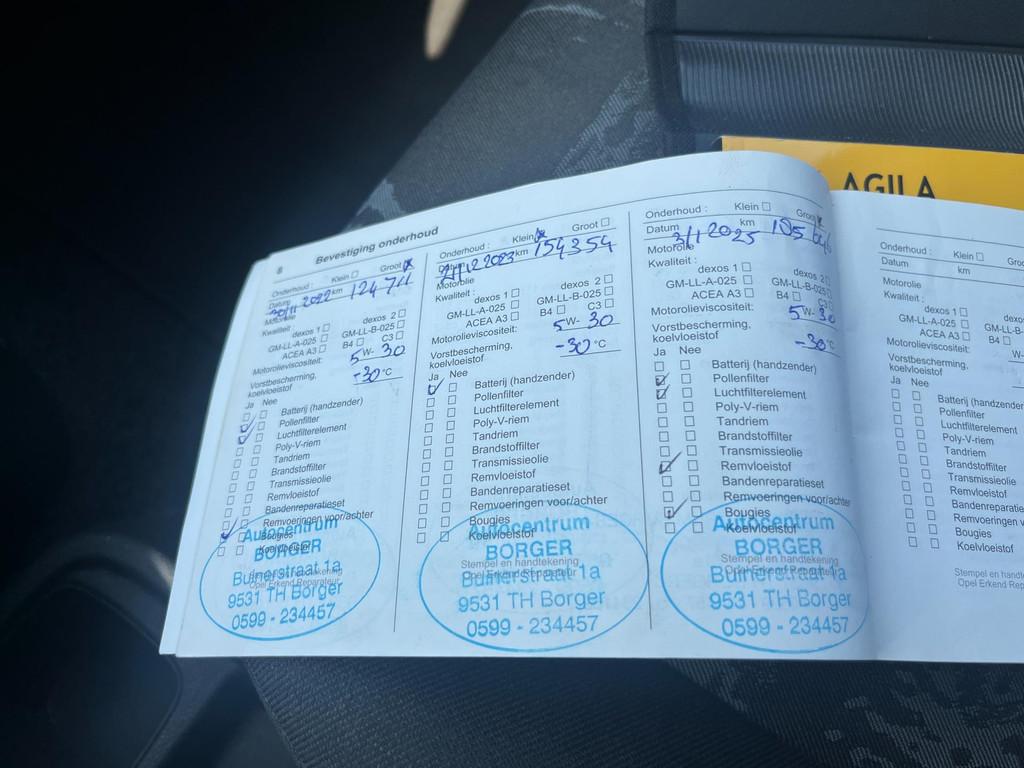 AGILA
8 Bevestiging onderhoud
Onderhoud : Klein Groot
Datum 2022 km 12471
Motorolie
Kwaliteit : dexos 1 dexos 2
GM-LL-A-025 GM-LL-B-025
ACEA A3 B4 C3
Motorolieviscositeit: 5W-30
Vorstbescherming,
koelvloeistof -30°C
Ja Nee
Batterij (handzender)
Pollenfilter
Luchtfilterelement
Poly-V-riem
Tandriem
Brandstoffilter
Transmissieolie
Remvloeistof
Bandenreparatieset
Remvoeringen voor/achter
Bougies
Koelvloeistof
Stempel en handtekening
Opel Erkend Reparateur
Autocentrum
BORGER
Buinerstraat 1a
9531 TH Borger
0599 - 234457
Onderhoud : Klein Groot
Datum 2023 km 154354
Motorolie
Kwaliteit : dexos 1 dexos 2
GM-LL-A-025 GM-LL-B-025
ACEA A3 B4 C3
Motorolieviscositeit: 5W-30
Vorstbescherming,
koelvloeistof -30°C
Ja Nee
Batterij (handzender)
Pollenfilter
Luchtfilterelement
Poly-V-riem
Tandriem
Brandstoffilter
Transmissieolie
Remvloeistof
Bandenreparatieset
Remvoeringen voor/achter
Bougies
Koelvloeistof
Stempel en handtekening
Opel Erkend Reparateur
Autocentrum
BORGER
Buinerstraat 1a
9531 TH Borger
0599 - 234457
Onderhoud : Klein Groot
Datum 3/1 2025 km
Motorolie
Kwaliteit : dexos 1 dexos 2
GM-LL-A-025 GM-LL-B-025
ACEA A3 B4 C3
Motorolieviscositeit: 5W-30
Vorstbescherming,
koelvloeistof -30°C
Ja Nee
Batterij (handzender)
Pollenfilter
Luchtfilterelement
Poly-V-riem
Tandriem
Brandstoffilter
Transmissieolie
Remvloeistof
Bandenreparatieset
Remvoeringen voor/achter
Bougies
Koelvloeistof
Stempel en handtekening
Opel Erkend Reparateur
Autocentrum
BORGER
Buinerstraat 1a
9531 TH Borger
0599 - 234457
Onderhoud : Klein Groo
Datum km
Motorolie
Kwaliteit : dexos 1
GM-LL-A-025 GM-LL-B
ACEA A3 B4
Motorolieviscositeit: W-
Vorstbescherming,
koelvloeistof
Ja Nee
Batterij (handzender
Pollenfilter
Luchtfilterelement
Poly-V-riem
Tandriem
Brandstoffilter
Transmissieolie
Remvloeistof
Bandenreparatieset
Remvoeringen v
Bougies
Koelvloeistof
Stempel en handt
Opel Erkend Rep